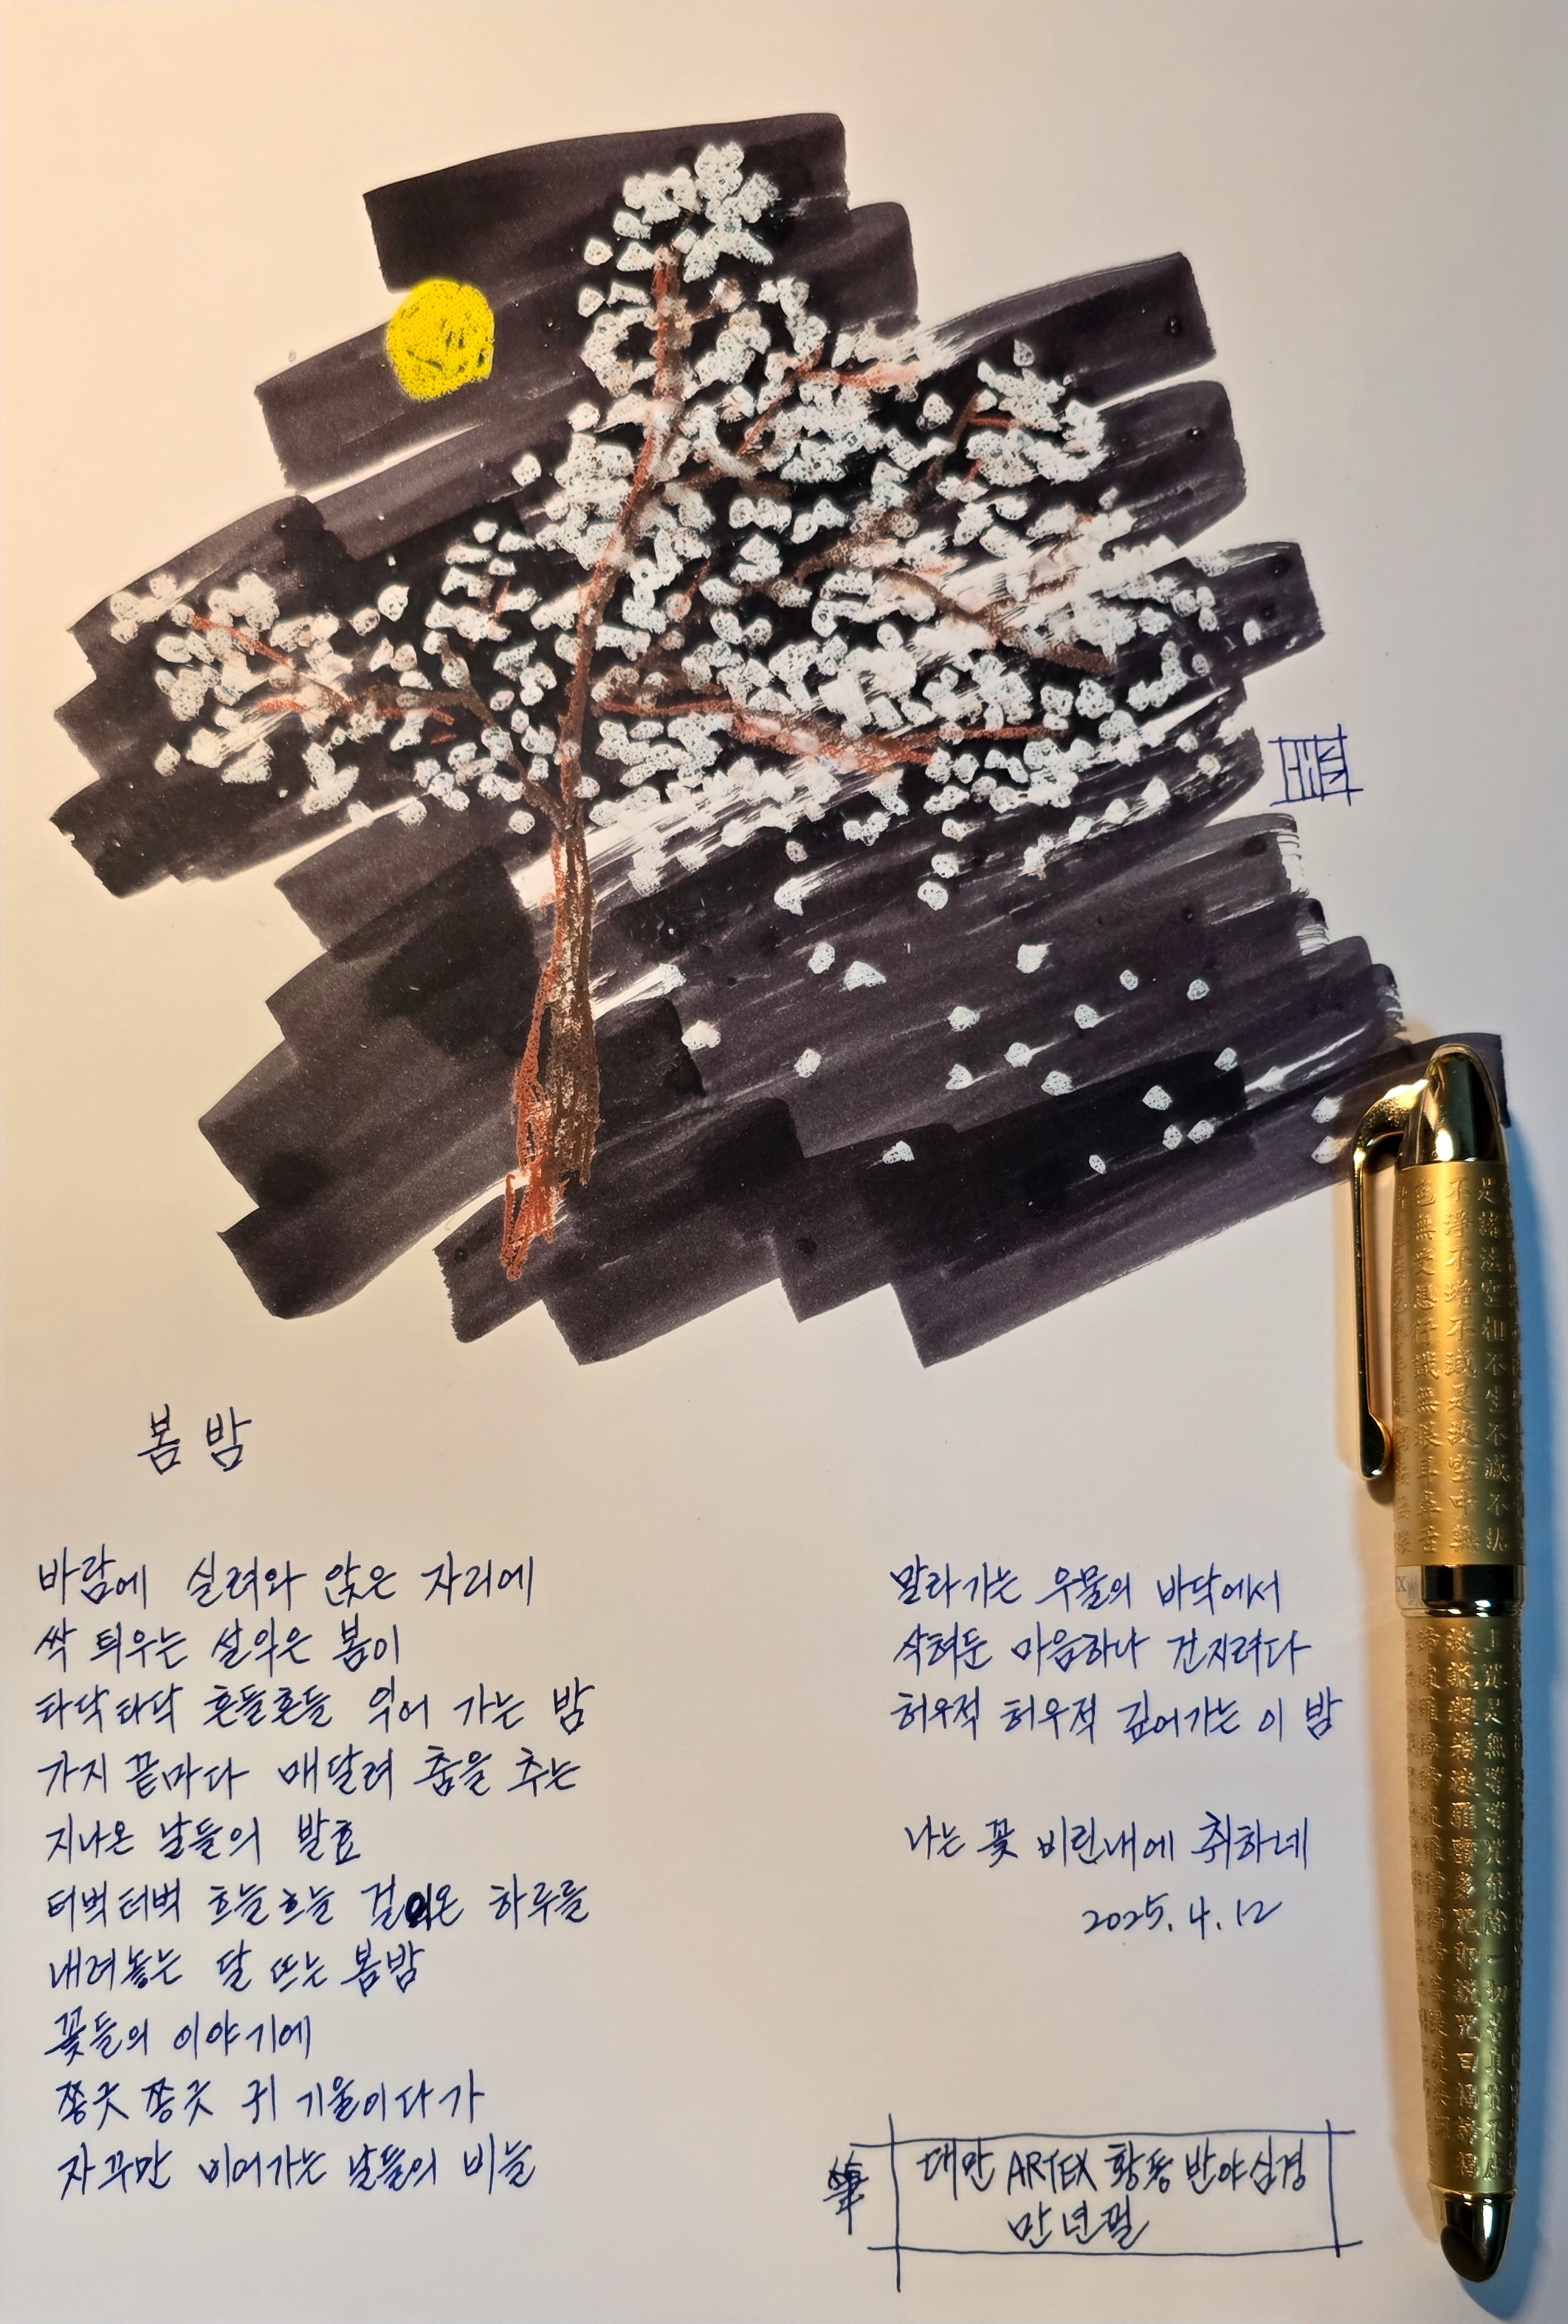 봄밤
바람에 실려와 앉은 자리에
싹 틔우는 설익은 봄이
타닥타닥 흔들흔들 익어 가는 밤
가지 끝마다 매달려 춤을 추는
지나온 날들의 발효
터벅터벅 흐늘흐늘 걸어온 하루를
내려놓는 달 뜨는 봄밤
꽃들의 이야기에
쫑긋 쫑긋 귀 기울이다가
자꾸만 비어가는 날들의 비늘
말라가는 우물의 바닥에서
삭혀둔 마음하나 건지려다
허우적 허우적 깊어가는 이 밤
나는 꽃 비린내에 취하네
2025. 4. 12
筆
대만 ARTEX 황동 반야심경
만년필